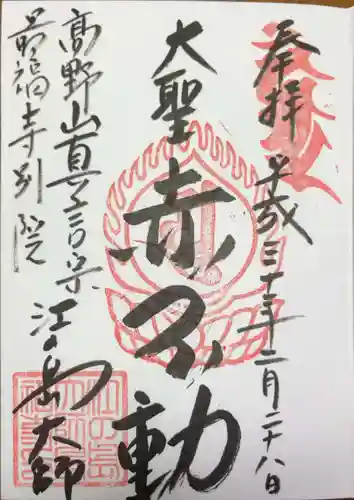 奉拝
平成三十三年二月二十八日
大聖赤不動
高野山真言宗
最福寺別院
江の島大師